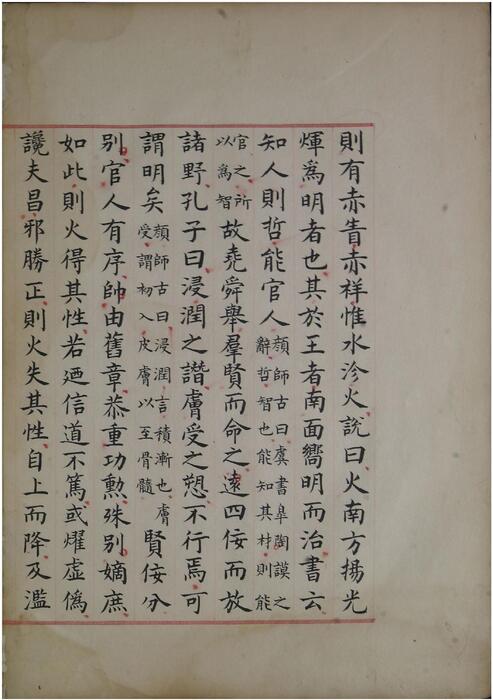 則有赤眚赤祥惟水沴火說曰火南方揚光
煇爲明者也其於王者南面嚮明而治書云
知人則哲能官人顏師古曰虞書皐陶謨之辭哲智也能知其材則能
官之所以爲智故堯舜舉羣賢而命之遠四佞而放
諸野孔子曰浸潤之譖膚受之愬不行焉可
謂明矣顏師古曰浸潤言積漸也膚受謂初入皮膚以至骨髓賢佞分
別官人有序帥由舊章恭重功勲殊別嫡庶
如此則火得其性若迺信道不篤或燿虛僞
讒夫昌邪勝正則火失其性自上而降及濫